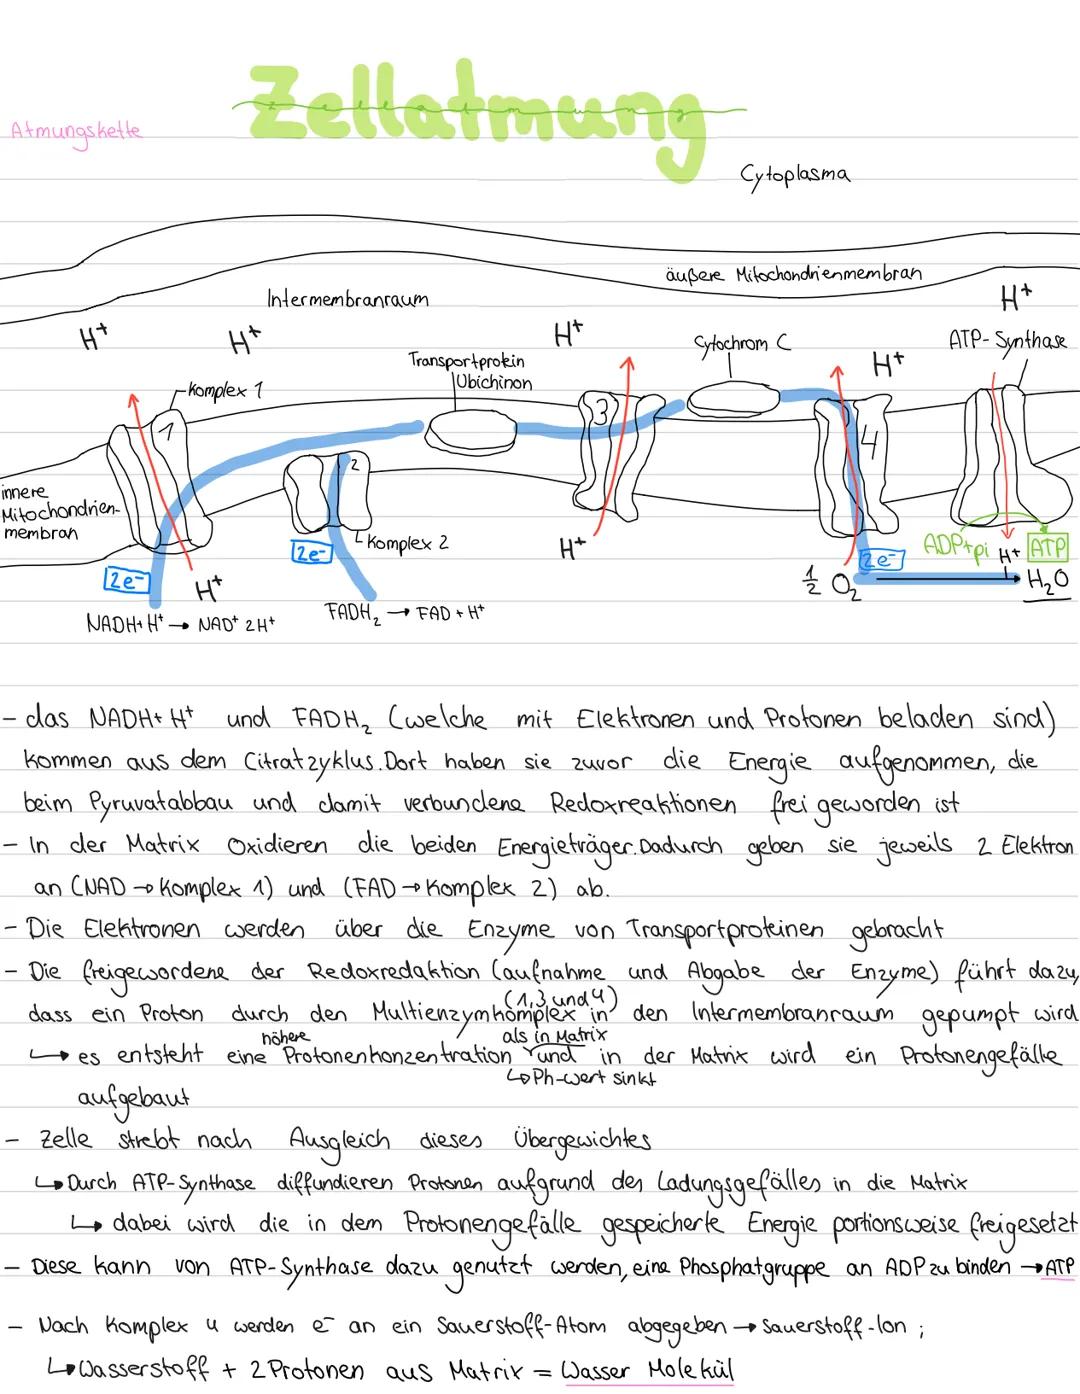 Zellatmung
Atmungskette
Cytoplasma
äußere Mitochondrienmembran
Intermembranraum
H+
H+
H+
H+
H+
Cytochrom C
ATP-Synthase
Transportprotein
Ubichinon
Komplex 1
1
2
3
4
innere
Mitochondrien-
membran
Komplex 2
2e-
2e-
2e-
H+
H+
ADP+pi
H+
ATP
½ O2
H2O
NADH+H+ → NAD+ 2H+
FADH2 → FAD + H+
- das NADH+ H+ und FADH2 (welche mit Elektronen und Protonen beladen sind)
kommen aus dem Citratzyklus. Dort haben sie zuvor die Energie aufgenommen, die
beim Pyruvatabbau und damit verbundene Redoxreaktionen frei geworden ist
- In der Matrix Oxidieren die beiden Energieträger. Dadurch geben sie jeweils 2 Elektron
an (NAD → Komplex 1) und (FAD → Komplex 2) ab.
- Die Elektronen werden über die Enzyme von Transportproteinen gebracht
- Die freigewordene der Redoxredaktion (aufnahme und Abgabe der Enzyme) führt dazu,
(1,3 und 4)
dass ein Proton durch den Multienzymkomplex in den Intermembranraum gepumpt wird
höhere als in Matrix
↳ es entsteht eine Protonenkonzentration und in der Matrix wird ein Protonengefälle
↳ Ph-wert sinkt
aufgebaut
- Zelle strebt nach Ausgleich dieses Übergewichtes
↳ Durch ATP-Synthase diffundieren Protonen aufgrund des Ladungsgefälles in die Matrix
↳ dabei wird die in dem Protonengefälle gespeicherte Energie portionsweise freigesetzt
- Diese kann von ATP-Synthase dazu genutzt werden, eine Phosphatgruppe an ADP zu binden → ATP
- Nach Komplex 4 werden e- an ein Sauerstoff-Atom abgegeben → Sauerstoff-Ion ;
↳ Wasserstoff + 2 Protonen aus Matrix = Wasser Molekül